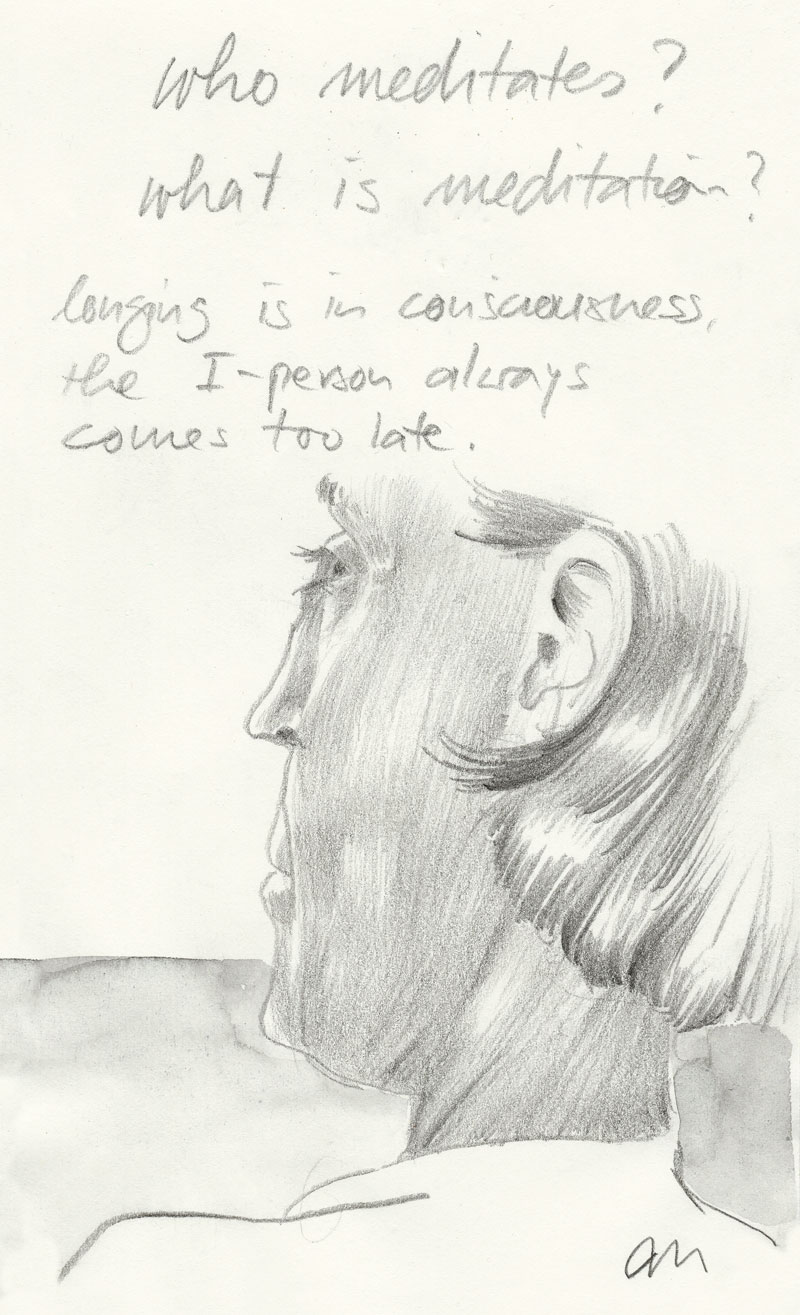 who meditates?
what is meditation?
longing is in consciousness,
the I-person always
comes too late.
am